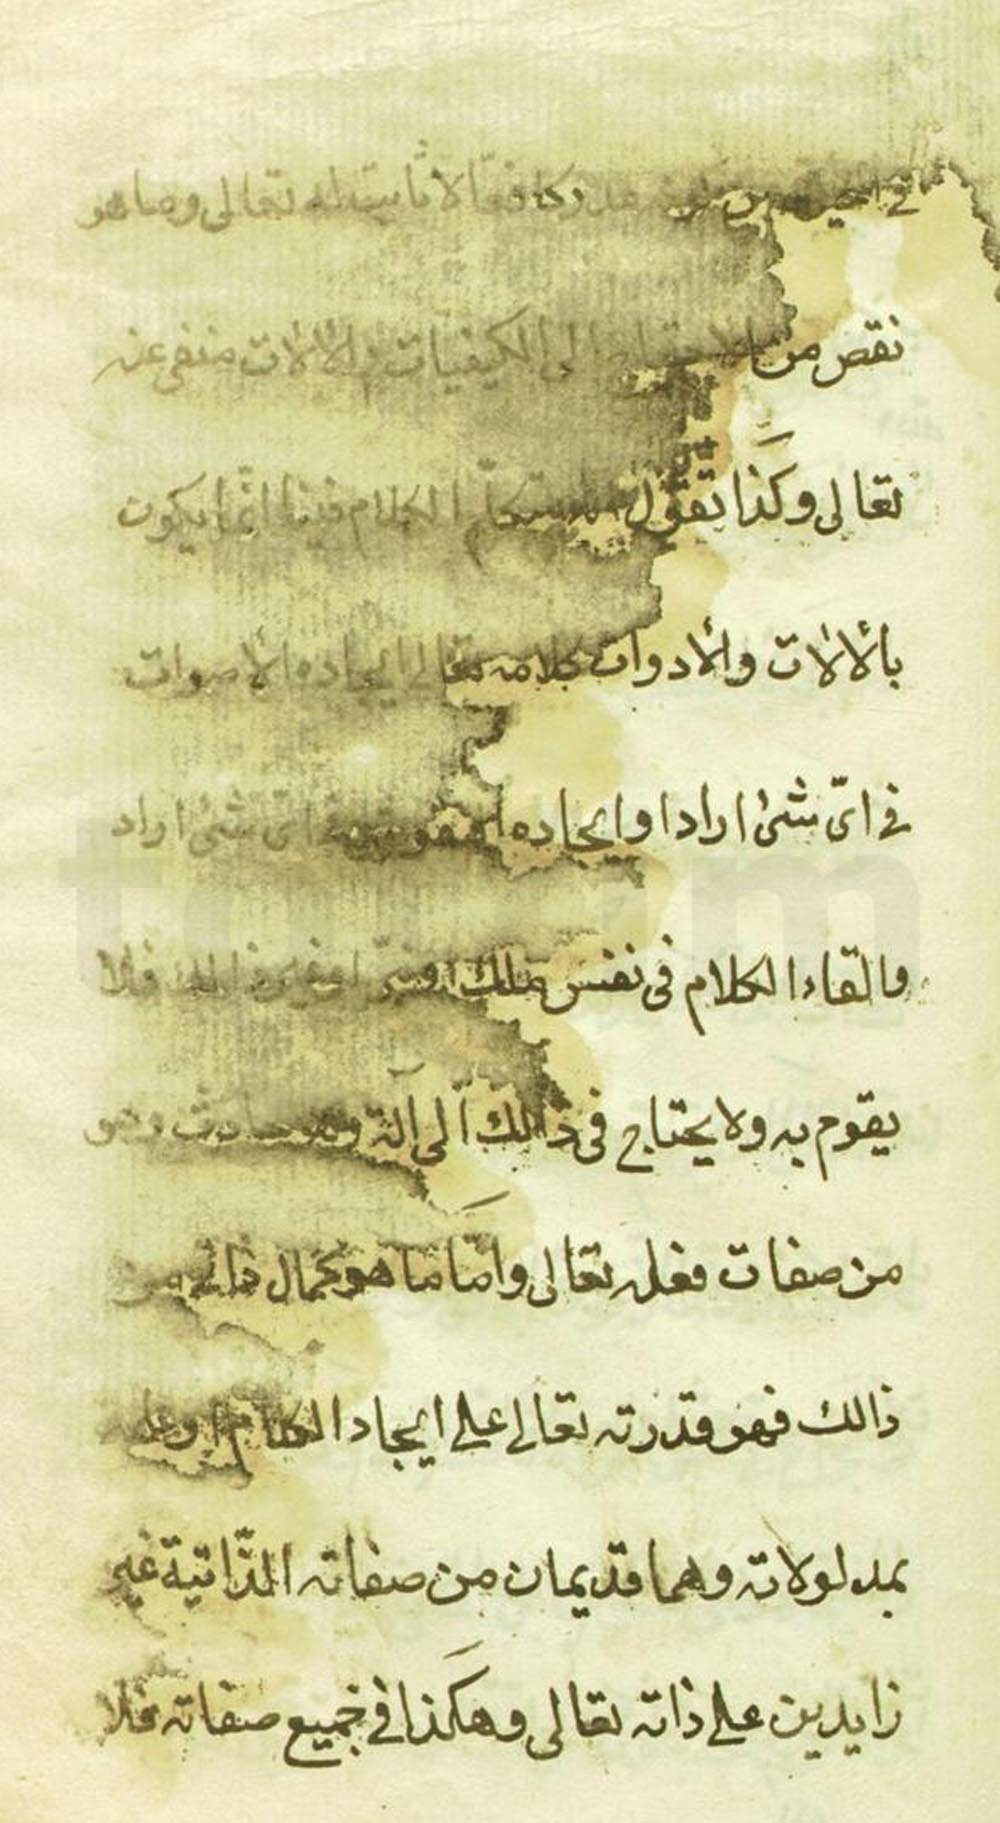 في وكا فعالا ثابتة له تعالى وما هو
نقص من الاحتياج الى الكيفيات والالات منفى عنه
تعالى وكذا تقول الكلام فينا انما يكون
بالالات والادوات كلامه تعالى ايجاده الاصوات
في اىّ شئ اراد او ايجاده اىّ شئ اراد
والقاء الكلام فى نفس ملك او ذالك فلا
يقوم به ولا يحتاج فى ذالك الى آلة وهو
من صفات فعله تعالى وامّا ما هو كمال ذاته من
ذالك فهو قدرته تعالى على ايجاد الكلام او علمه
بمدلولاته وهما قديمان من صفاته الذّاتية غير
زايدين على ذاته تعالى وهكذا في جميع صفاته فلا